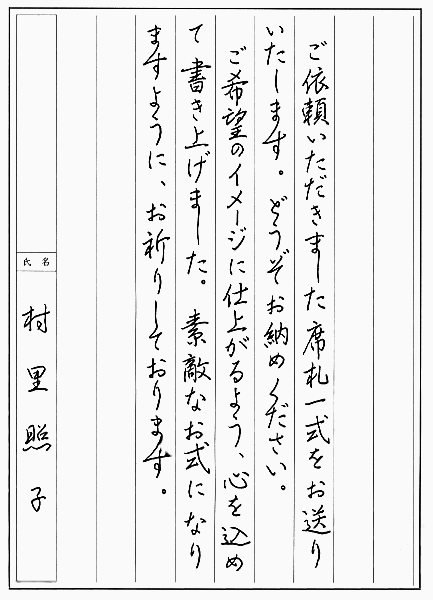 ご依頼いただきました席札一式をお送り
いたします。どうぞお納めください。
ご希望のイメージに仕上がるよう、心を込め
て書き上げました。素敵なお式になり
ますように、お祈りしております。
氏名
村里照子